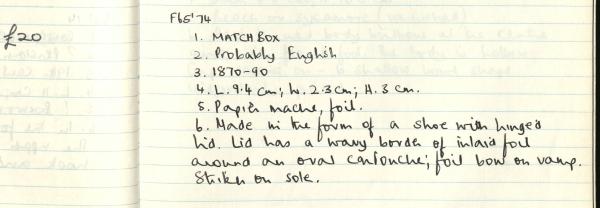 F65'74
£20
1. MATCH BOX
2. Probably English
3. 1870-90
4. L. 9.4 cm; W. 2.3cm; H. 3 cm.
5. Papier mache, foil.
6. Made in the form of a shoe with hinged
lid. Lid has a wavy border of inlaid foil
around an oval cartouche; foil bow on vamp.
Striker on sole.